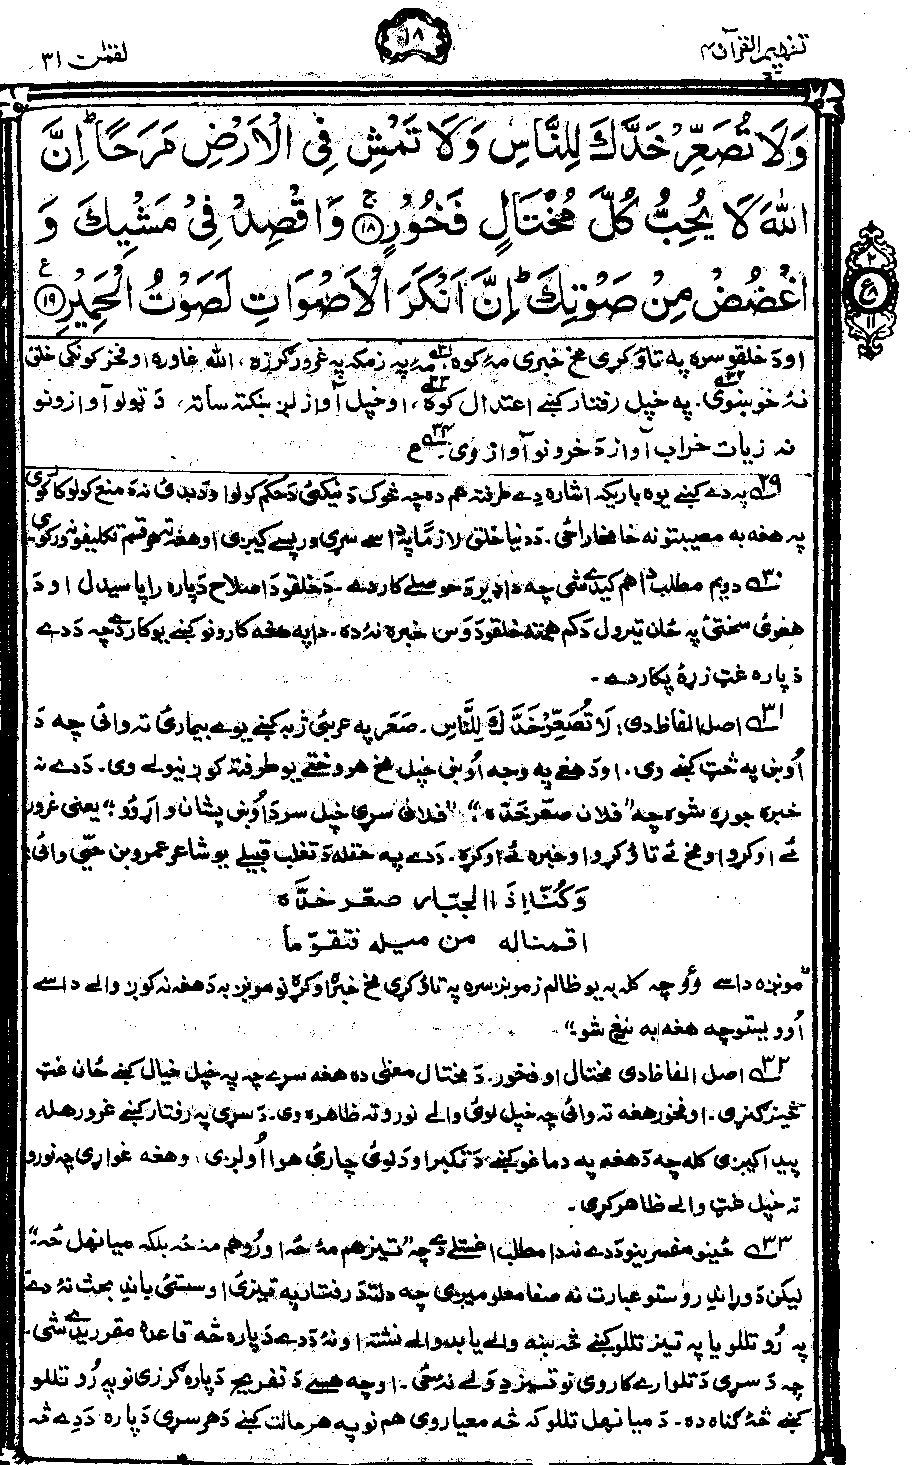 تفهیم القرآن ۴
۱۸
لقمٰن ۳۱
وَلَا تُصَعِّرْ خَدَّكَ لِلنَّاسِ وَلَا تَمْشِ فِي الْاَرْضِ مَرَحًا ۭ اِنَّ
اللّٰهَ لَا يُحِبُّ كُلَّ مُخْتَالٍ فَخُوْرٍ ۚ ﴿۱۸﴾ وَاقْصِدْ فِيْ مَشْيِكَ وَ
اغْضُضْ مِنْ صَوْتِكَ ۭ اِنَّ اَنْكَرَ الْاَصْوَاتِ لَصَوْتُ الْحَمِيْرِ ﴿۱۹﴾ ع
۲
ع
۸
۱۱
او دَ خلقو سره په تاؤ کړی مخ خبری مهٔ کوه،۳۱ مهٔ په زمکه په غرور ګرزه، الله غاوره او فخر کوونکی خلق
نهٔ خوښوی۳۲۔ په خپل رفتار کښے اعتدال کوه۳۳، او خپل آواز لږ ښکته ساته، دَ ټولو آوازونو
نه زیات خراب آواز دَ خرونو آواز وی۳۴۔ ع
۲۹ په دے کښے یوه باریکه اشاره دے طرفته هم ده چه څوک دَ نیکئ دَ حکم کولو او دَ بدئ نه دَ منع کولو کار کوی
په هغه به مصیبتونه خامخا راځی۔ دَ دنیا خلق لازماً په داسے سړی ورپسے کیږی او هغهٔ ته هر قسم تکلیفونه ورکوی۔
۳۰ دویم مطلب دا هم کیدے شی چه دا ډیر دَ حوصلے کار دے۔ دَ خلقو دَ اصلاح دَپاره راپاسیدل او دَ
هغوئ سختئ په ځان تیرول دَ کم همته خلقو دَ وس خبره نهٔ ده۔ دا په هغه کارونو کښے یو کار دے چه دَ دے
دَپاره غټ زړهٔ پکار دے۔
۳۱ اصل الفاظ دی: لَا تُصَعِّرْ خَدَّكَ لِلنَّاسِ۔ صَعَر په عربئ ژبه کښے یوے بیمارئ ته وائی چه دَ
اُوښ په څټ کښے وی۔ او دَ هغے په وجه اُوښ خپل مخ هر وختے یو طرفته کوږ نیولے وی۔ دَ دے نه
خبره جوړه شوه چه ”فلان صعّر خدّه“، ”فلانی سړی خپل سر دَ اُوښ پشان واړوؤ“، یعنی غرور
ئے اوکړو او مخ ئے تاؤ کړو او خبره ئے اوکړه۔ دَدے په حقله دَ تغلب قبیلے یو شاعر عمرو بن حیّی وائی:
وَكُنَّا اِذَا الجبّار صعّر خدّه
اقمناله من میله فتقوّما
”مونږه داسے وؤ چه کله به یو ظالم زمونږ سره په تاؤ کړی مخ خبرے اوکړے نو مونږ به دَ هغه نه کوږ والے داسے
اُوویستو چه هغه به نیغ شو۔“
۳۲ اصل الفاظ دی مختال او فخور۔ دَ مختال معنٰی ده هغه سړے چه په خپل خیال کښے ځان غټ
څیز ګنړی۔ او فخور هغه ته وائی چه خپل لوئی والے نورو ته ظاهروی۔ دَ سړی په رفتار کښے غرور هله
پیدا کیږی کله چه دَ هغه په دماغو کښے دَ تکبر او دَ لوئی چارئ هوا اُولږی، او هغه غواړی چه نورو
ته خپل غټ والے ظاهر کړی۔
۳۳ ځینو مفسرینو دَ دے نه دا مطلب اخستلے دے چه ”تیز هم مهٔ ځه او رُو هم مه ځه بلکه میانهل ځه“
لیکن دَ وړاند روستو عبارت نه صفا معلومیږی چه دلته دَ رفتار په تیزئ او سستئ باند بحث نهٔ دے
په رُو تللو یا په تیز تللو کښے څه ښه والے یا بد والے نشته او نهٔ دَ دے دَپاره څه قاعده مقرریدے شی۔
چه دَ سړی دَ تلوار کار وی نو تیز دِ ولے نهٔ ځی۔ او چه هسے دَ تفریح دَپاره ګرزی نو په رُو تللو
کښے څهٔ ګناه ده۔ دَ میانهل تللو که څه معیار وی هم نو په هر حالت کښے دَ هر سړی دَپاره دَ دے څه